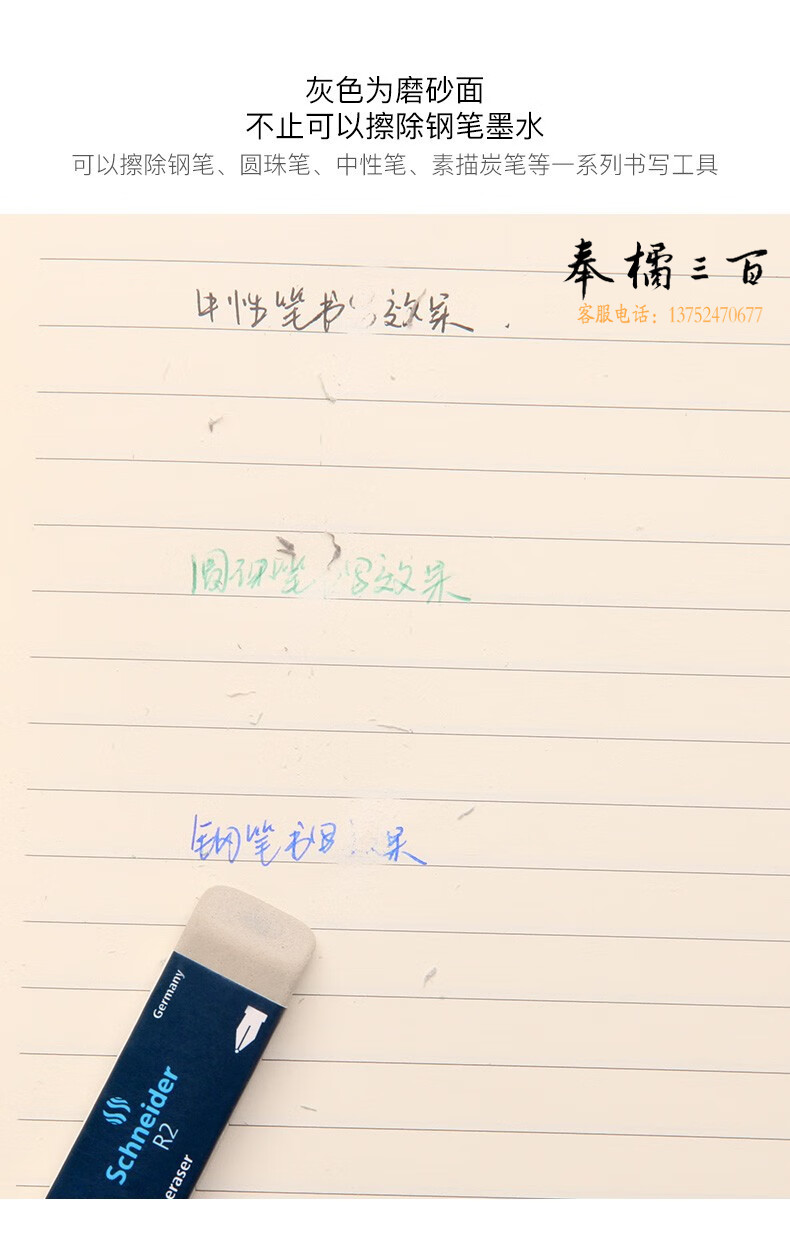 灰色为磨砂面
不止可以擦除钢笔墨水
可以擦除钢笔、圆珠笔、中性笔、素描炭笔等一系列书写工具
奉橘三百
客服电话：13752470677
中性笔书写效果.
圆珠笔 写效果
钢笔书写 果
Germany
Schneider
R2
eraser